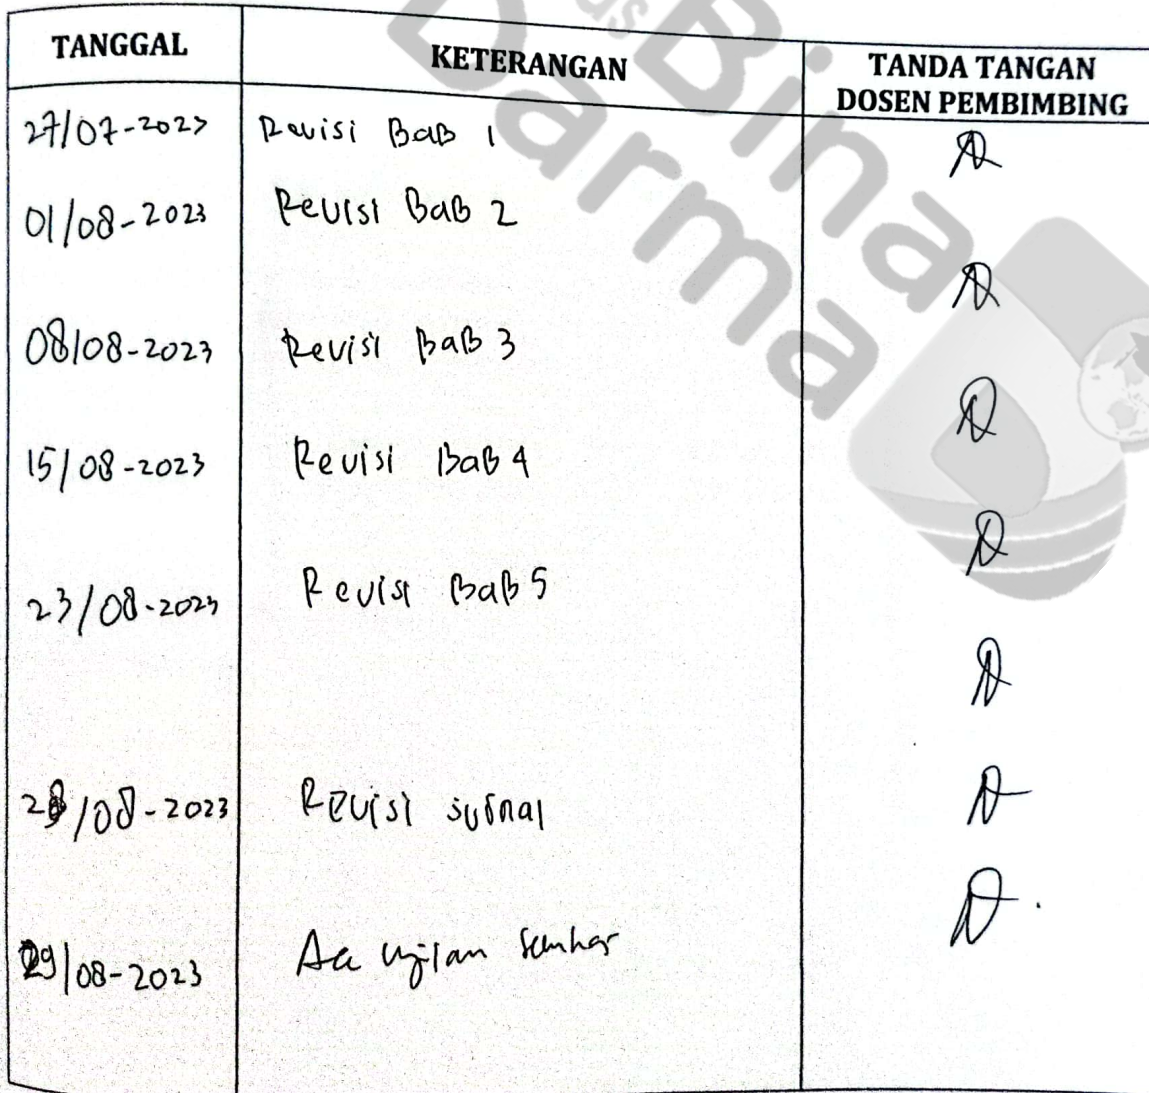 TANGGAL KETERANGAN TANDA TANGAN
DOSEN PEMBIMBING
27/07-2023 Revisi BaB 1
01/08-2023 Revisi BaB 2
08/08-2023 Revisi BaB 3
15/08-2023 Revisi BaB 4
23/08-2023 Revisi BaB 5
28/08-2023 Revisi Jurnal
29/08-2023 Acc Ujian Semhas
us
Bina
Darma